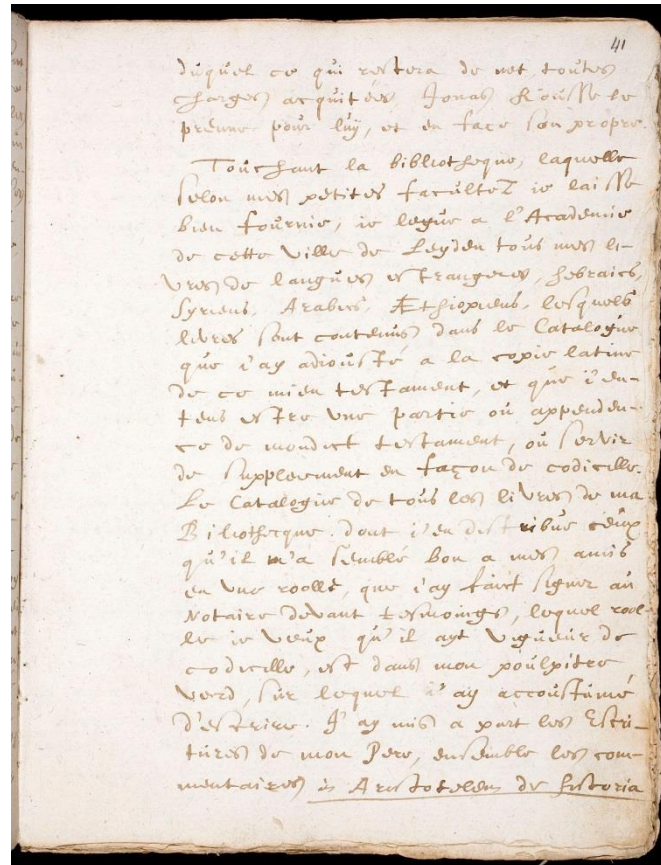 41
duquel ce qui restera de net, toutes
charges acquitées Jonas Rousse le
prenne pour luy, et en face son propre.
Touchant la bibliotheque, laquelle
selon mes petites facultez ie laisse
bien fournie, ie legue a l'Academie
de cette ville de Leyden tous mes li-
vres de langues estrangeres, hebraics,
Syriens, Arabics, Æthiopiens, lesquels
livres sont contenus dans le Catalogue
que i'ay adiousté a la copie latine
de ce mien testament, et que i'en-
tens estre une partie ou appenden-
ce de mondict testament, ou servir
de suppleement en façon de codicelle.
Le Catalogue de tous les livres de ma
Biliothecque. dont i'en distribue ceux
qu'il m'a semblé bon a mes amis
en une roolle, que i'ay faict signer au
Notaire devant tesmoings, lequel rool-
le ie veux qu'il ayt vigueur de
codicelle, est dans mon poulpitre
verd, sur lequel i'ay accoustumé
d'escrire. J'ay mis a part les Escri-
tures de mon Pere, ensemble les com-
mentaires in Aristotelem de historia